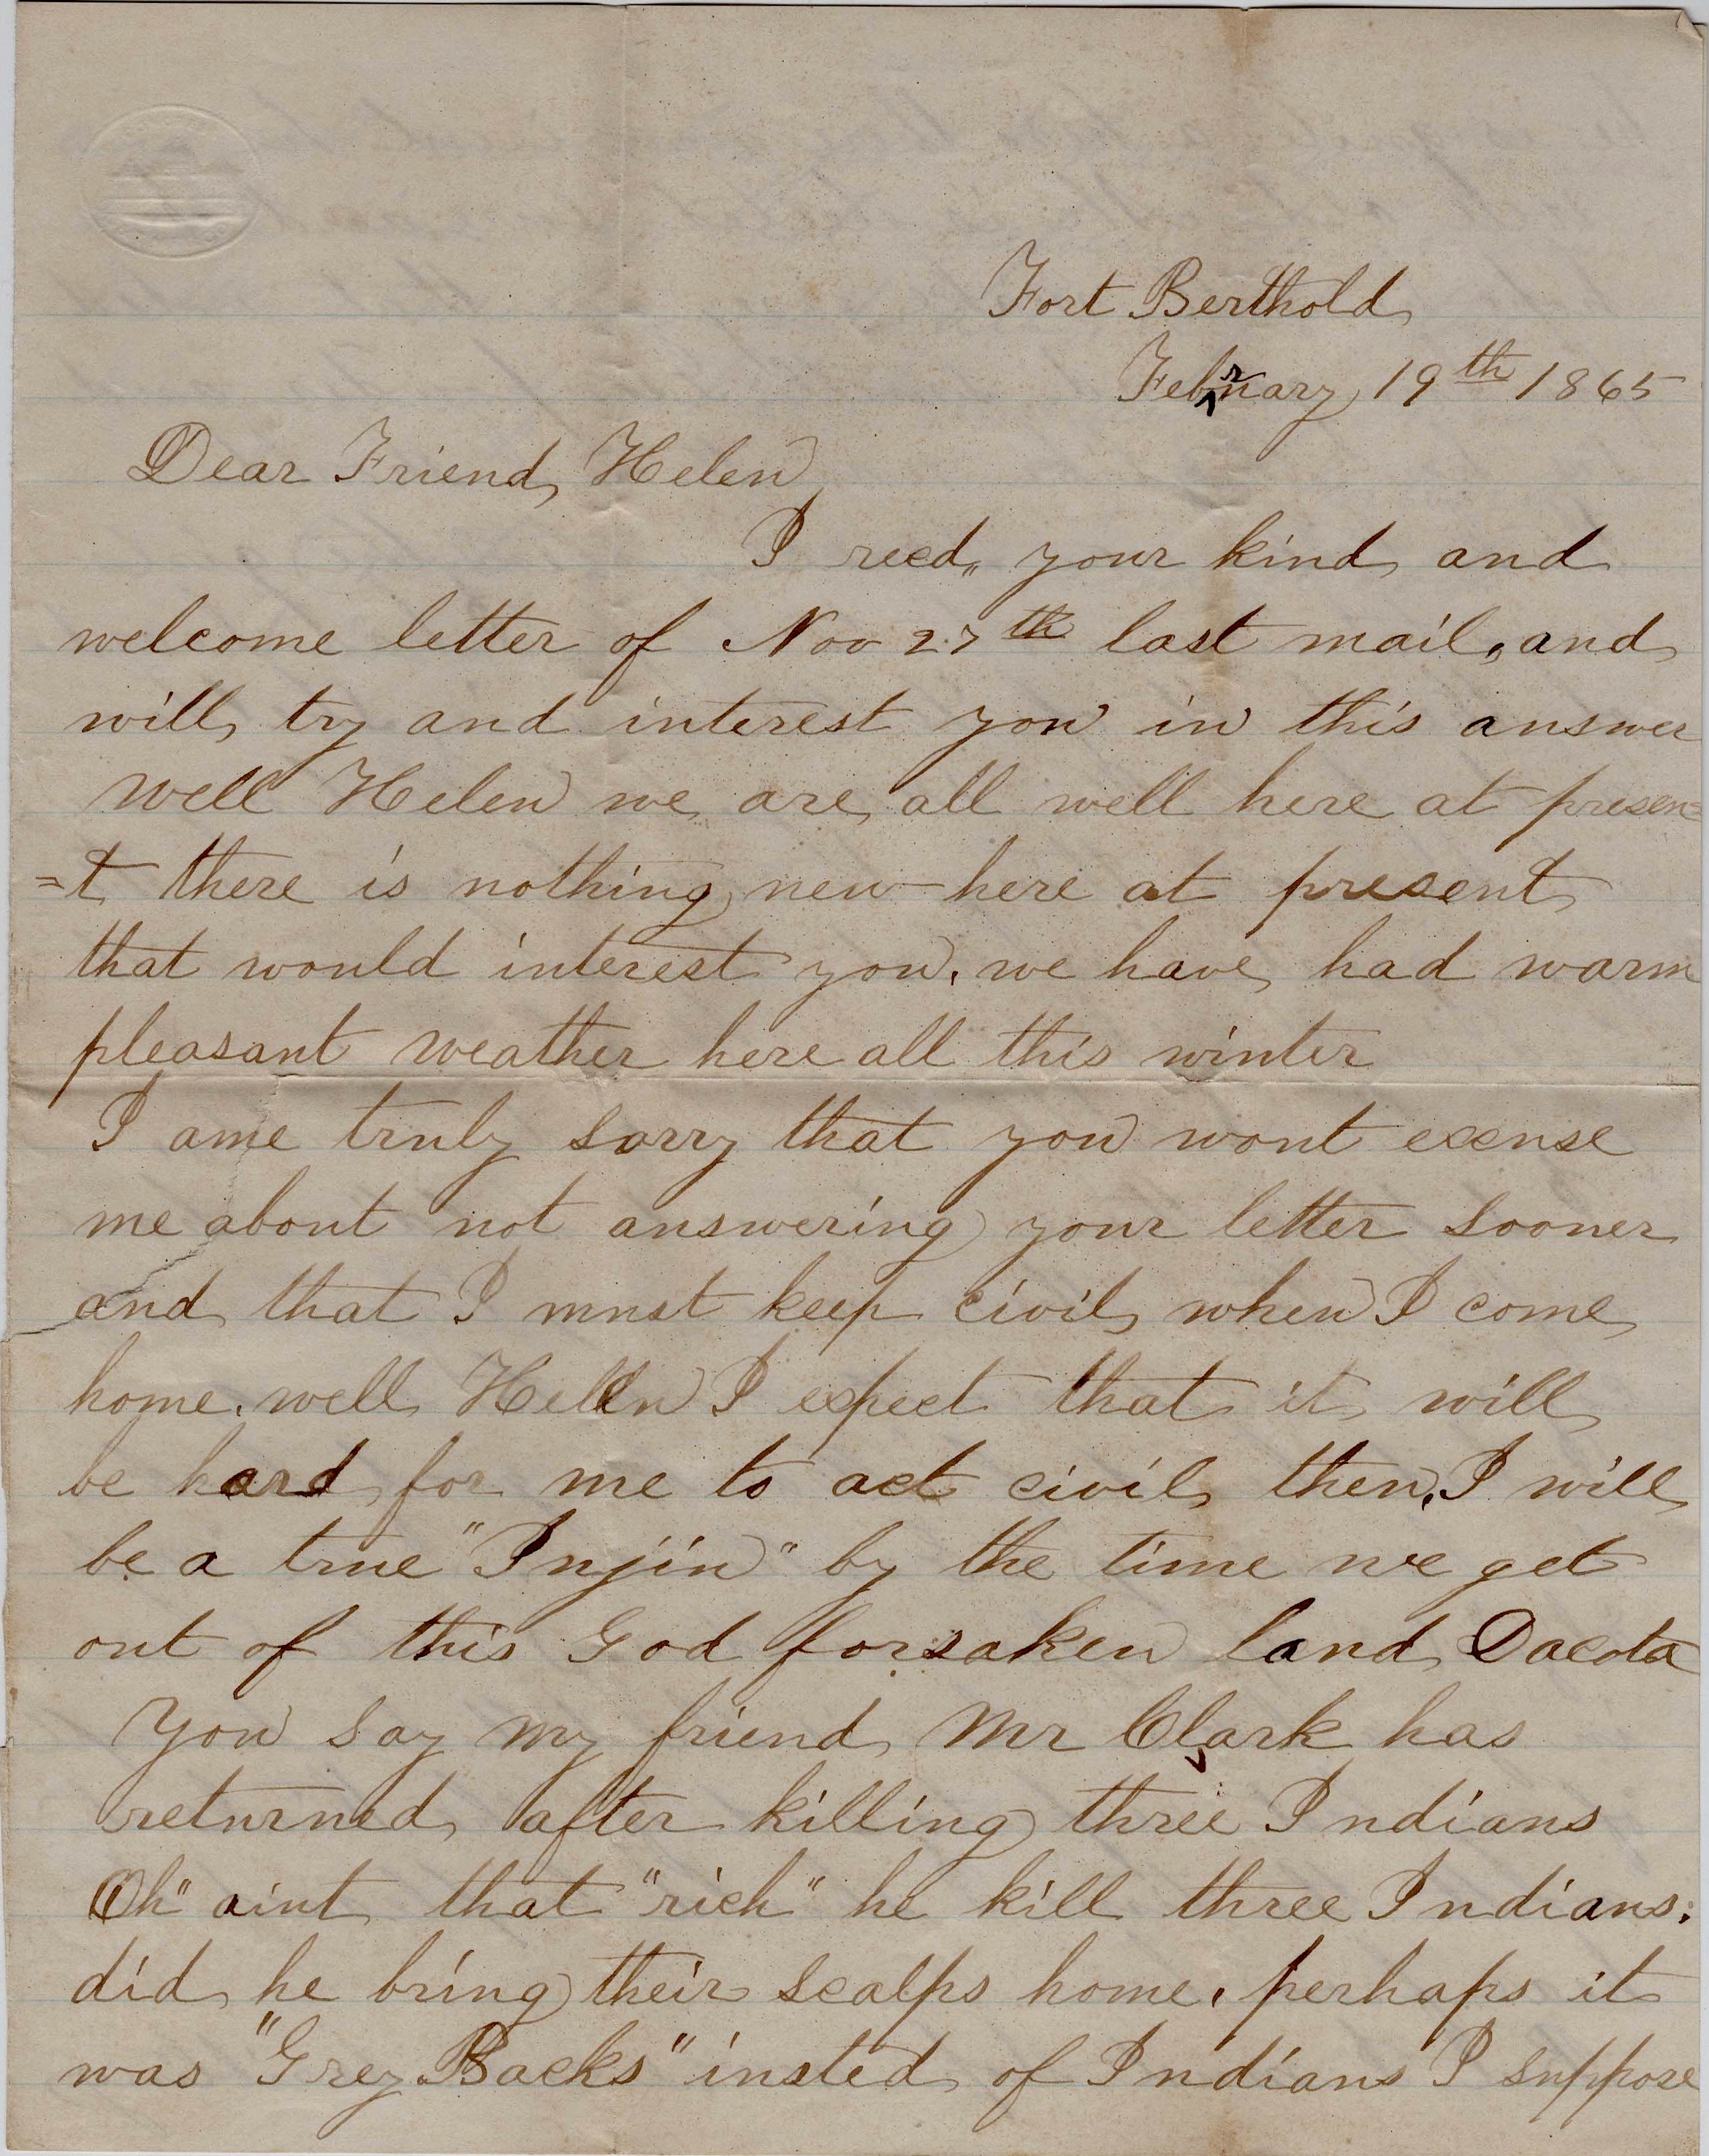 Fort Berthold
February 19th 1865
Dear Friend, Helen
I recd,, your kind and
welcome letter of Nov 27th last mail, and
will try and interest you in this answer
well Helen we are all well here at presen=
=t there is nothing new here at present
that would interest you. we have had warm
pleasant weather here all this winter
I ame truly sorry that you wont excuse
me about not answering your letter sooner
and that I must keep civil when I come
home. well Hellen I expect that it will
be hard for me to act civil then. I will
be a true "Injin" by the time we get
out of this God forsaken land Dacota
You say my friend Mr Clark has
returned after killing three Indians
Oh" aint that "rich" he kill three Indians.
did he bring their scalps home. perhaps it
was "Grey Backs" insted of Indians I suppose